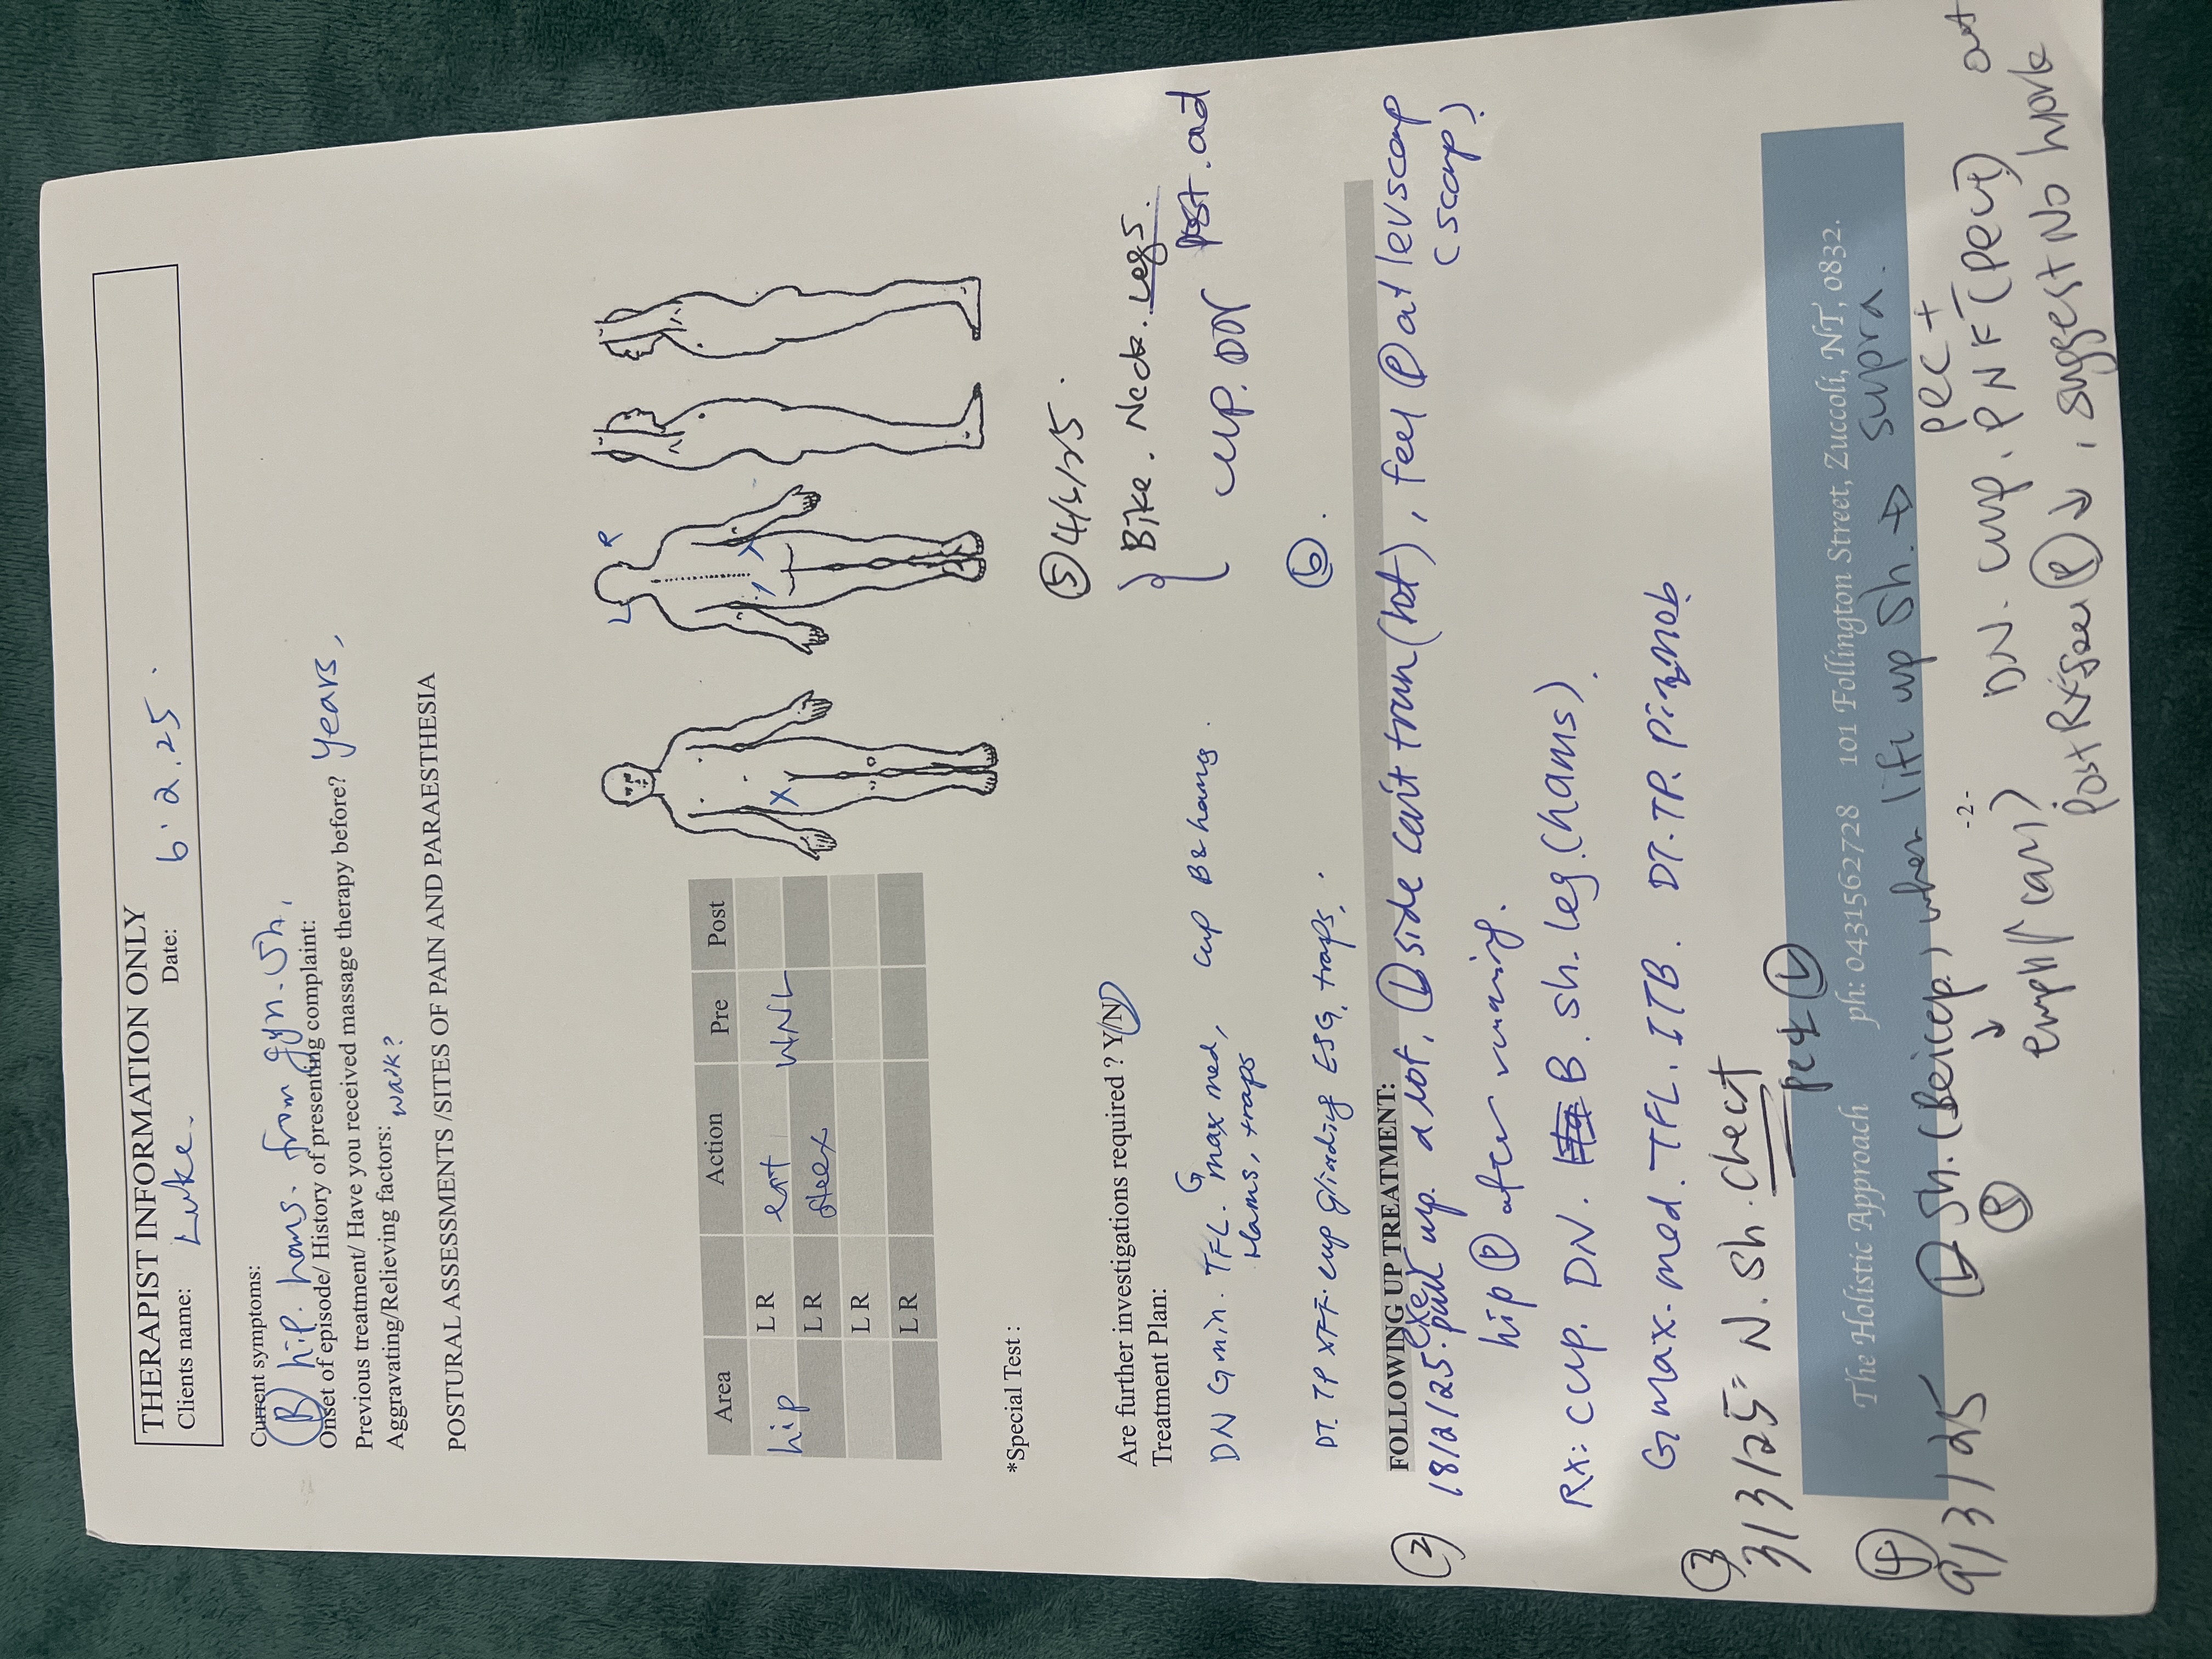 THERAPIST INFORMATION ONLY
Clients name: Luke. Date: 6.2.25.
Current symptoms:
(B) hip. hams. from gym. sh,
Onset of episode/ History of presenting complaint:
Previous treatment/ Have you received massage therapy before? Years,
Aggravating/Relieving factors: walk?
POSTURAL ASSESSMENTS /SITES OF PAIN AND PARAESTHESIA
Area Action Pre Post
hip L R ext WNL
L R
L R
L R
L R
X
*Special Test :
⑤ 4/4/25.
Bike. Neck. Legs.
cup. DN post.
Are further investigations required ? Y/N
Treatment Plan:
DN Gmin. TFL. G max med, cup B& hams.
Hams, traps
⑥.
DT. TP XFF. cup gliding ESG, traps,.
FOLLOWING UP TREATMENT:
② 18/2/25. up. a lot, (L) side can't train (hot), feel (P) at lev scap
(scap?)
hip (P) after running.
Rx: cup. DN. B. sh. leg. (hams).
G max. med. TFL. ITB. DT. TP. mob
③ 3/3/25: N. sh. chect
pect (L)
The Holistic Approach ph: 0431562728 101 Follington Street, Zuccoli, NT, 0832.
④ 9/3/25 (L) sh. (Beicep), when lift up sh. → supra.
-2-
(P) ↓ pec +
empty can) DN. cup. PNF (pect)
post Rx feel (P) ↓, suggest No work out